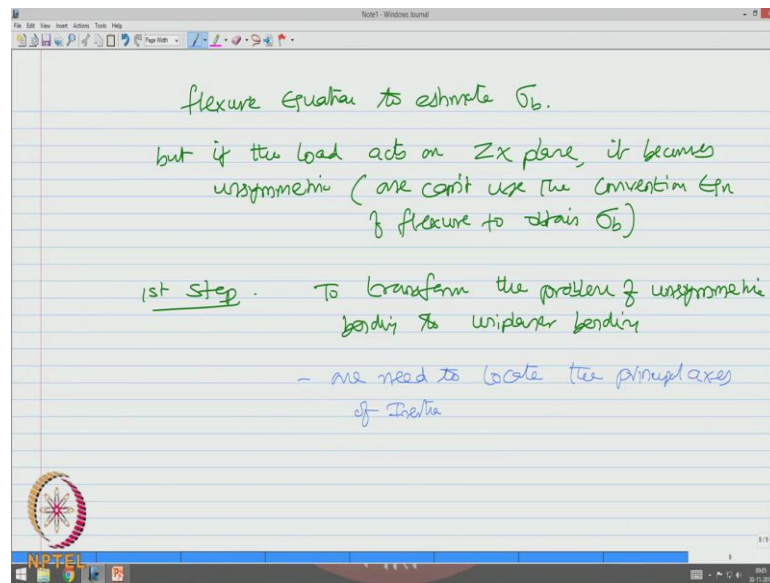 Note1 - Windows Journal
File Edit View Insert Actions Tools Help
Page Width
flexure Equation to estimate σb.
but if the load acts on Zx plane, it becomes
unsymmetric (one can't use the convention Eqn
of flexure to obtain σb)
1st step. To transform the problem of unsymmetric
bending to uniplanar bending
- one need to locate the principal axes
of Inertia
9/9
9
NPTEL